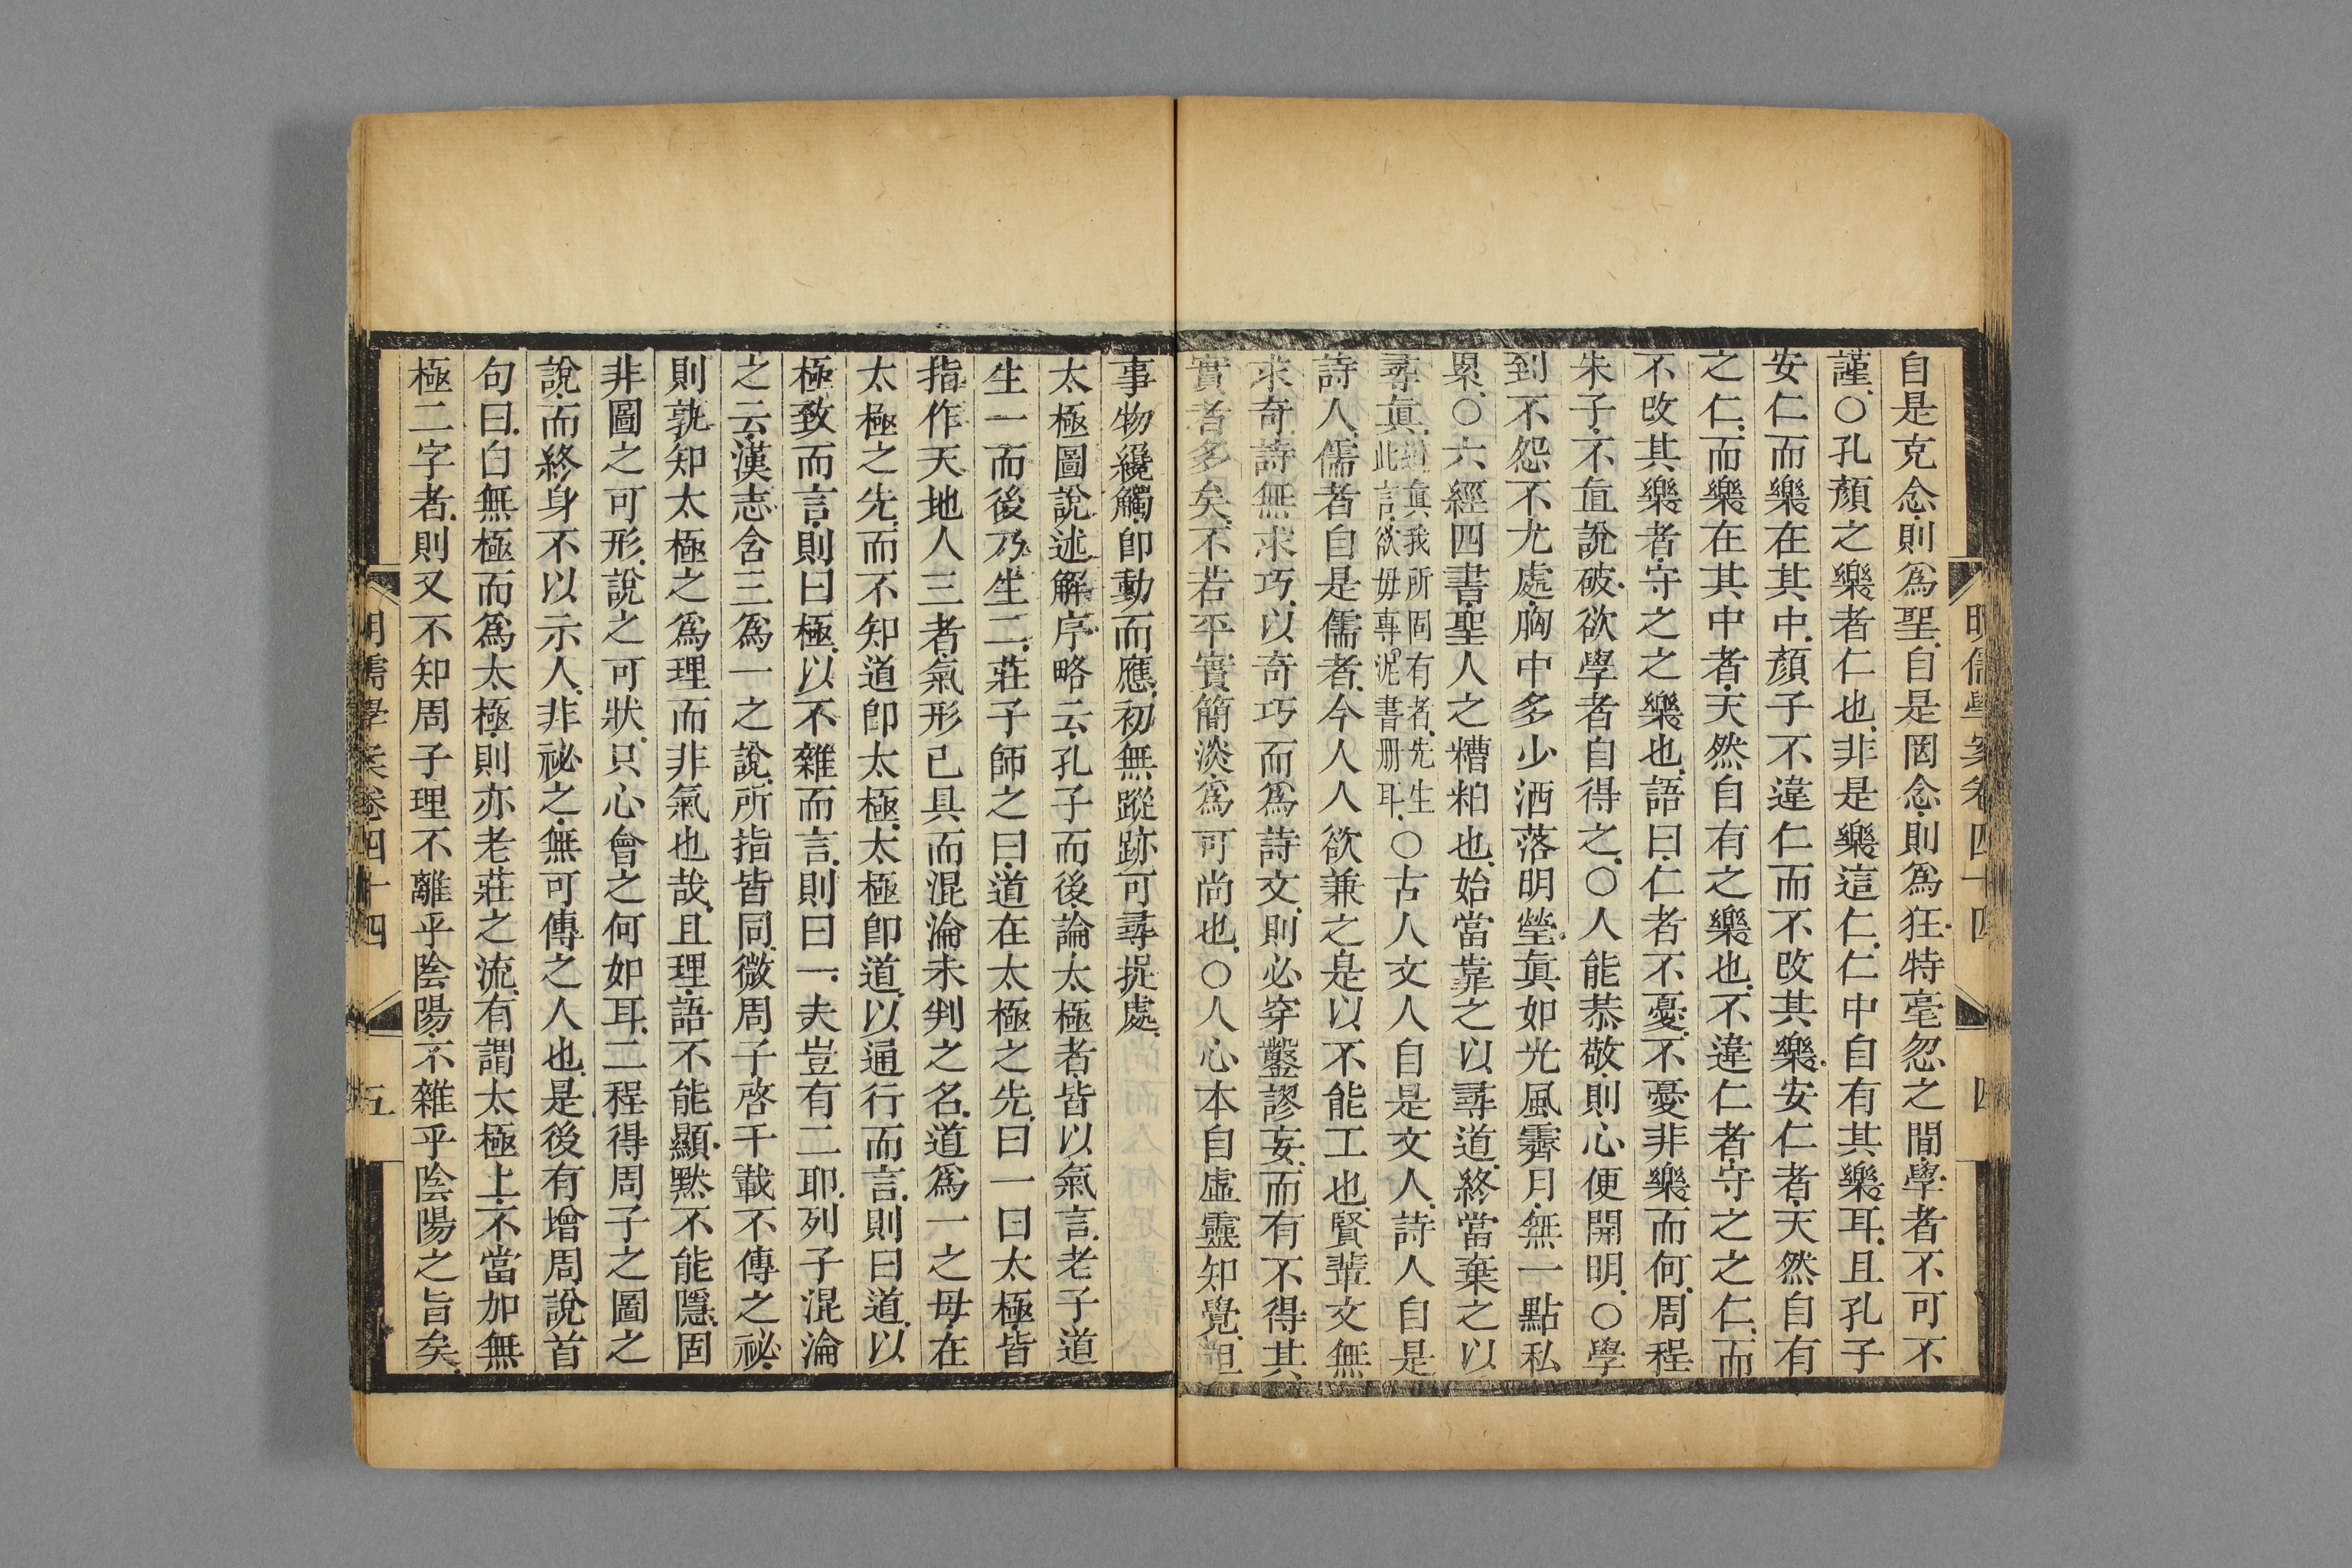 明儒學案卷四十四 四
自是克念則爲聖自是罔念則爲狂特毫忽之間學者不可不
謹○孔顏之樂者仁也非是樂這仁仁中自有其樂耳且孔子
安仁而樂在其中顏子不違仁而不改其樂安仁者天然自有
之仁而樂在其中者天然自有之樂也不違仁者守之之仁而
不改其樂者守之之樂也語曰仁者不憂不憂非樂而何周程
朱子不直說破欲學者自得之○人能恭敬則心便開明○學
到不怨不尤處胸中多少洒落明瑩眞如光風霽月無一點私
累○六經四書聖人之糟粕也始當靠之以尋道終當棄之以
尋眞道眞我所固有者先生此言欲毋專泥書册耳○古人文人自是文人詩人自是
詩人儒者自是儒者今人人欲兼之是以不能工也賢輩文無
求奇詩無求巧以奇巧而爲詩文則必穿鑿謬妄而有不得其
實者多矣不若平實簡淡爲可尚也○人心本自虛靈知覺但
事物纔觸卽動而應初無蹤跡可尋捉處
太極圖說述解序略云孔子而後論太極者皆以氣言老子道
生一而後乃生二莊子師之曰道在太極之先曰一曰太極皆
指作天地人三者氣形已具而混淪未判之名道爲一之母在
太極之先而不知道卽太極太極卽道以通行而言則曰道以
極致而言則曰極以不雜而言則曰一夫豈有二耶列子混淪
之云漢志含三爲一之說所指皆同微周子啓千載不傳之祕
則孰知太極之爲理而非氣也哉且理語不能顯默不能隱固
非圖之可形說之可狀只心會之何如耳二程得周子之圖之
說而終身不以示人非祕之無可傳之人也是後有增周說首
句曰自無極而爲太極則亦老莊之流有謂太極上不當加無
極二字者則又不知周子理不離乎陰陽不雜乎陰陽之旨矣
明儒學案卷四十四 五